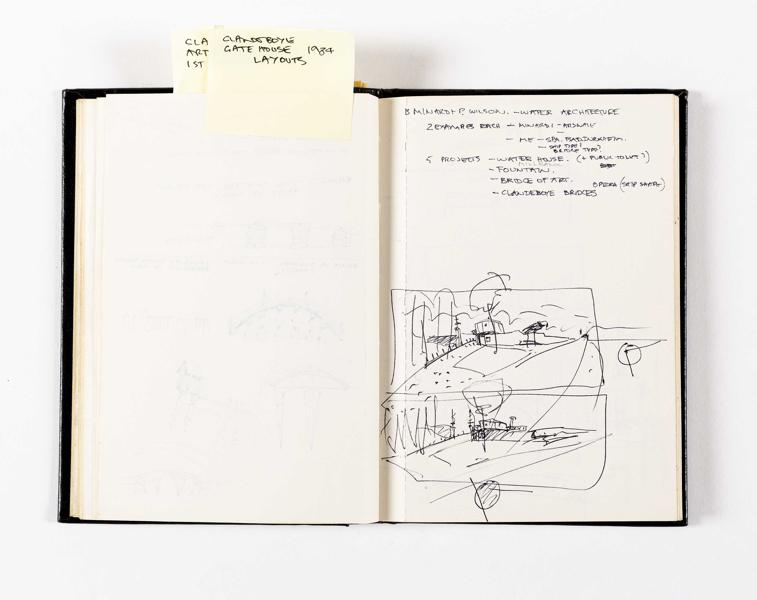 CLA
ART
1ST
CLANDEBOYE
GATE HOUSE 1984
LAYOUTS
B MINARDI P. WILSON. - WATER ARCHITECTURE
2 EXAMPLES EACH - MINARDI -
- ME - SPA,
- SHIP THAT?
BRIDGE THAT?
5 PROJECTS - WATER HOUSE. (+ PUBLIC TOILET?)
- FOUNTAIN.
- BRIDGE OF ART. OPERA (SHIP SHAPE)
- CLANDEBOYE BRIDGES